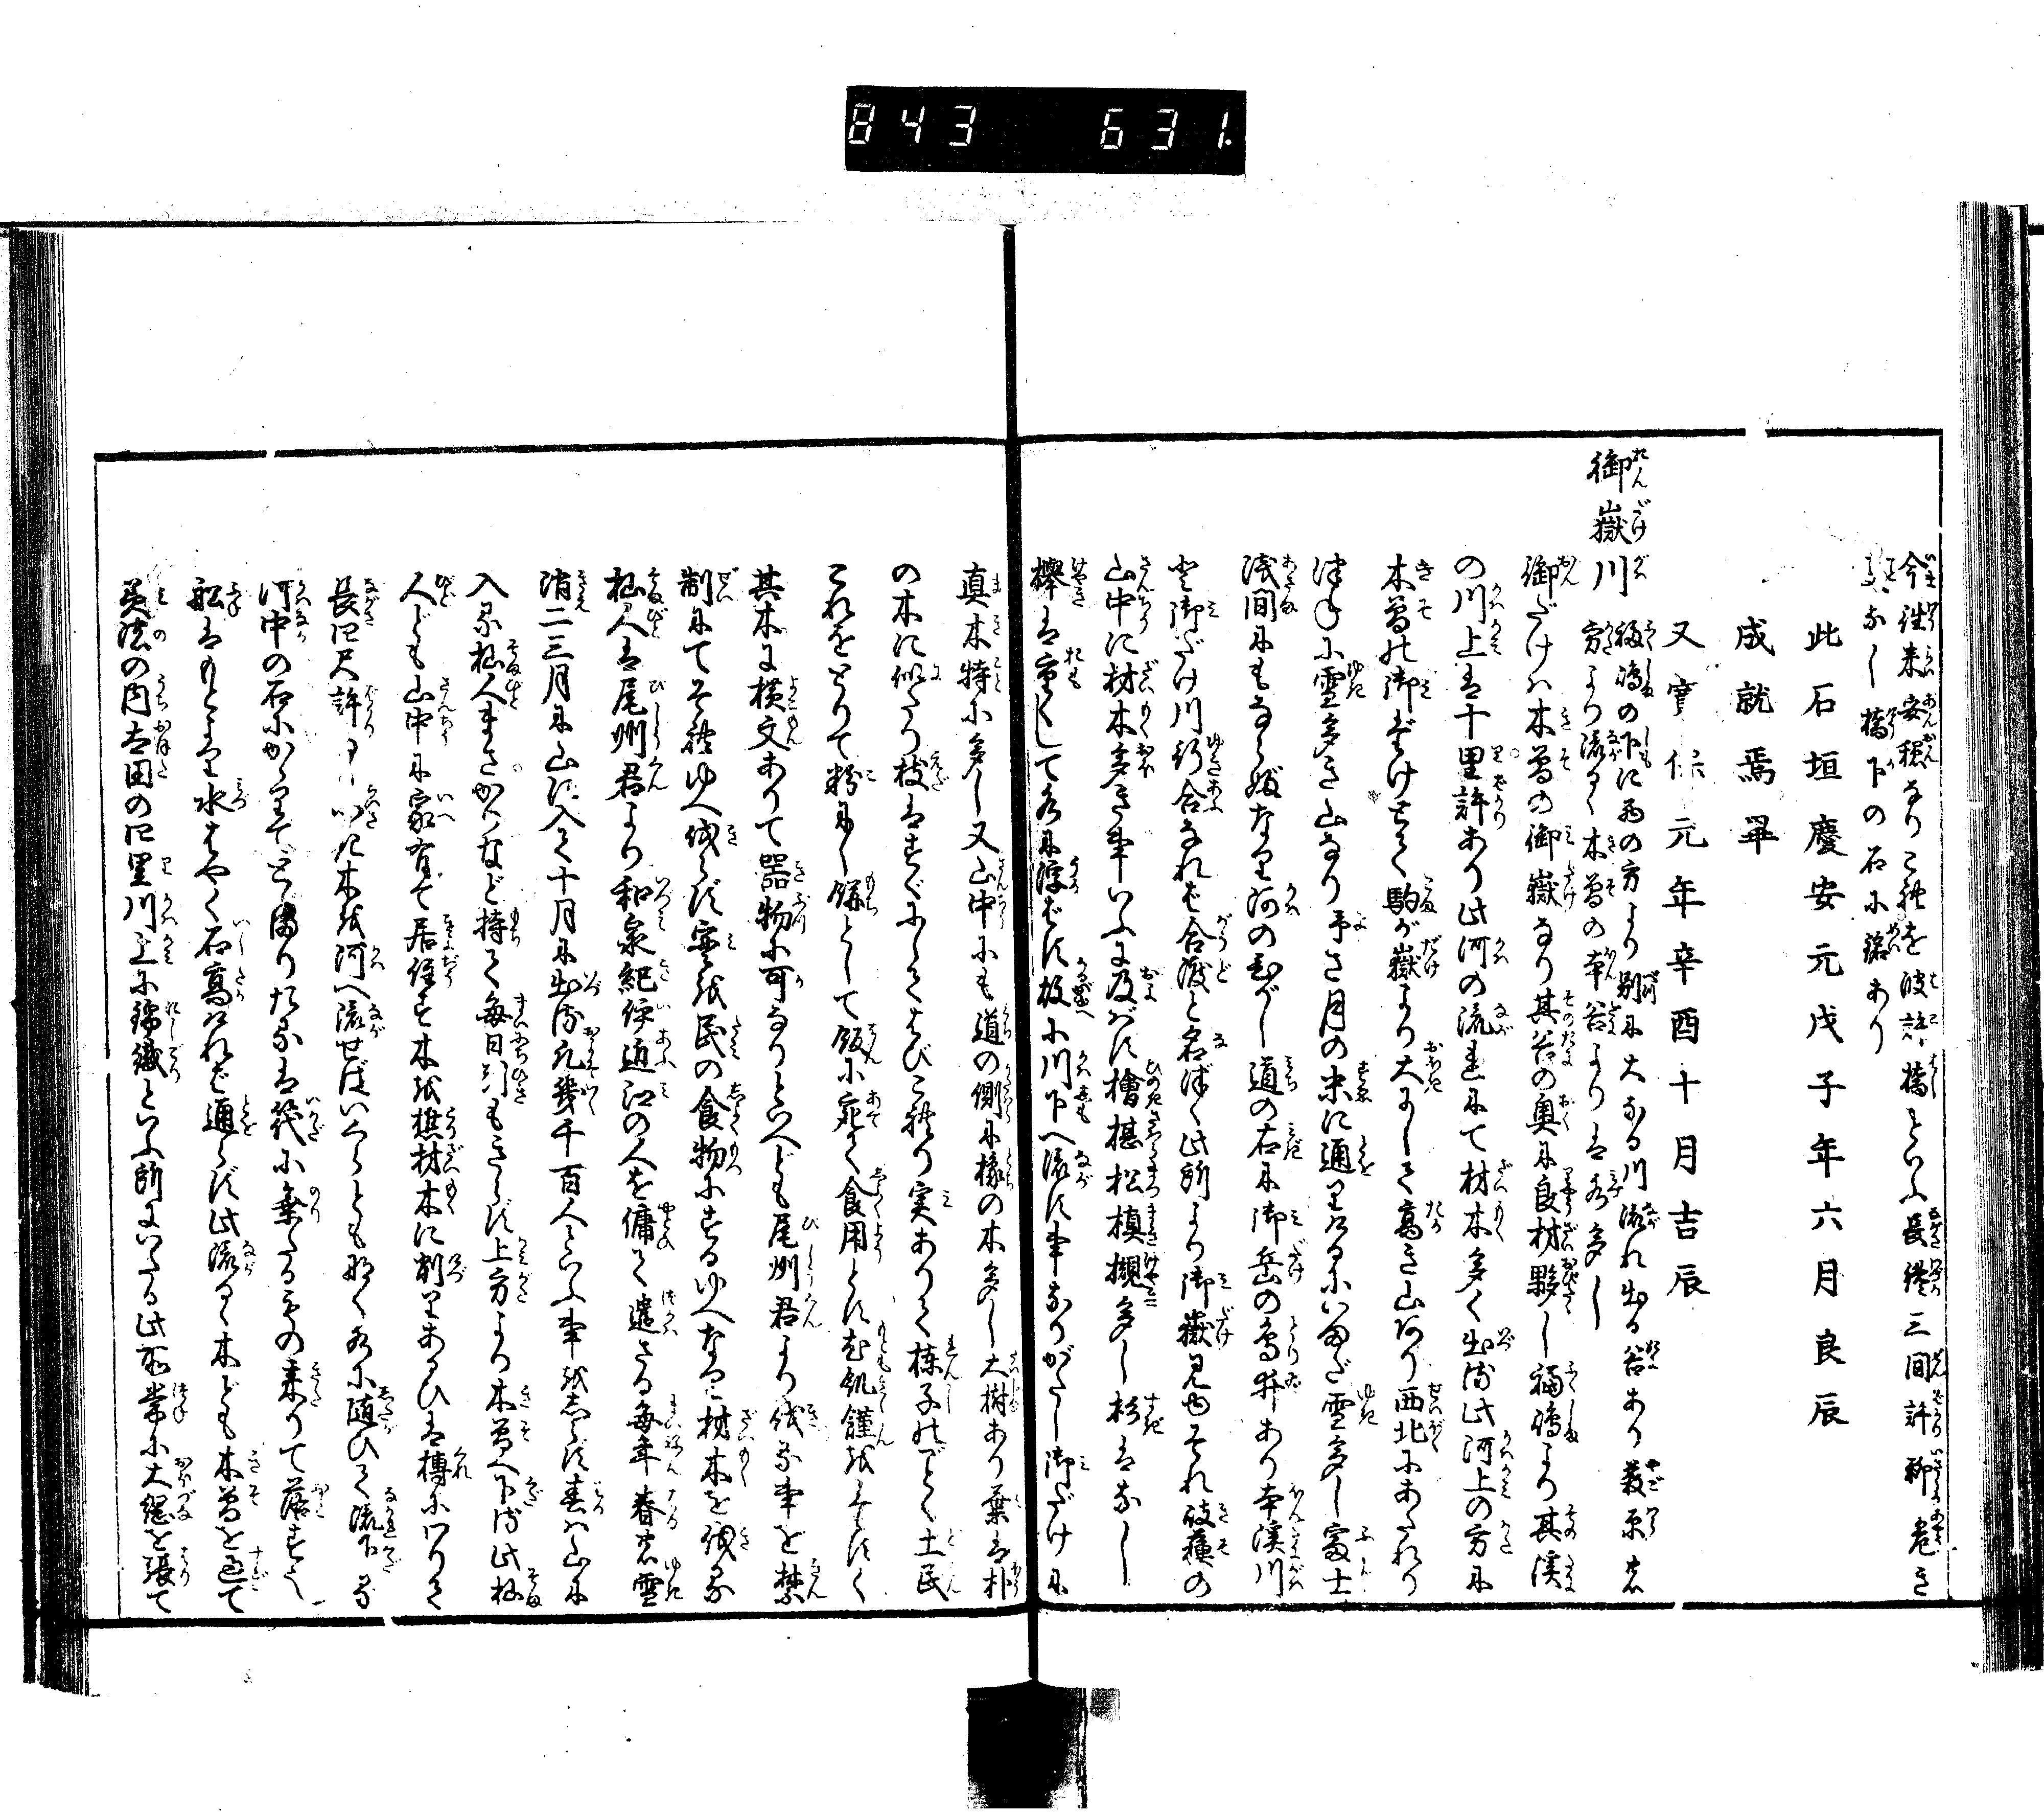 843 631
今往来安穏なりこれを波許橋といふ長僅三間許聊危き
事なし橋下の石に銘あり
此石垣慶安元戊子年六月良辰
成就焉畢
又寛保元年辛酉十月吉辰
御嶽川
福嶋の下に西の方より別に大なる川流れ出る谷あり薮原の
方より流るゝ木曽の本谷よりは水多し
御だけは木曽の御嶽なり其谷の奥に良材夥し福嶋より其渓
の川上は十里許あり此河の流にて材木多く出す此河上の方に
木曽の御だけとて駒が嶽より大にして高き山あり西北にあたれり
つねに雪多き山なり予さ月の末に通りけるにいまだ雪多し富士
浅間にもならぶなり河のひがし道の右に御岳の鳥井あり本渓川
と御だけ川行合なれば合渡と名づく此所より御嶽見ゆそれ岐蘇の
山中に材木多き事いふに及ばず檜椹松槙槻多し杉はなし
欅は重くして水に浮ばず故に川下へ流す事なりがたし御だけに
真木特に多し又山中にも道の側に橡の木多し大樹あり葉は朴
の木に似たり枝はすぐにしてのびこれり実ありて棟子のごとく土民
これをとりて粉にし餅として飯に宛て食用とす尤飢饉をたすく
其木に横文ありて器物に可なりといへども尾州君より伐る事を禁
制にてそれゆへ伐らず実を民の食物にするゆへなり材木を伐る
杣人は尾州君より和泉紀伊近江の人を傭て遣さる毎年春雪
消二三月に山に入て十月に出す凡幾千百人といふ事をしらず春は山に
入る杣人まさかりなど持て毎日引もきらず上方より木曽へ下る此杣
人ども山中に家有て居住す木を樵材木に削りあるひは榑にわりて
長四尺許に〆いに木を河へ流せばいくらとも数なく水に随ひて流下る
河中の石にかゝりてとゞまりたるは筏に乗たるもの来りて落す也
船はもとより水はやく石高ければ通らず此流るゝ木ども木曽を過て
美濃の内太田の四里川上に錦織といふ所にいたる此所常に大綱を張て